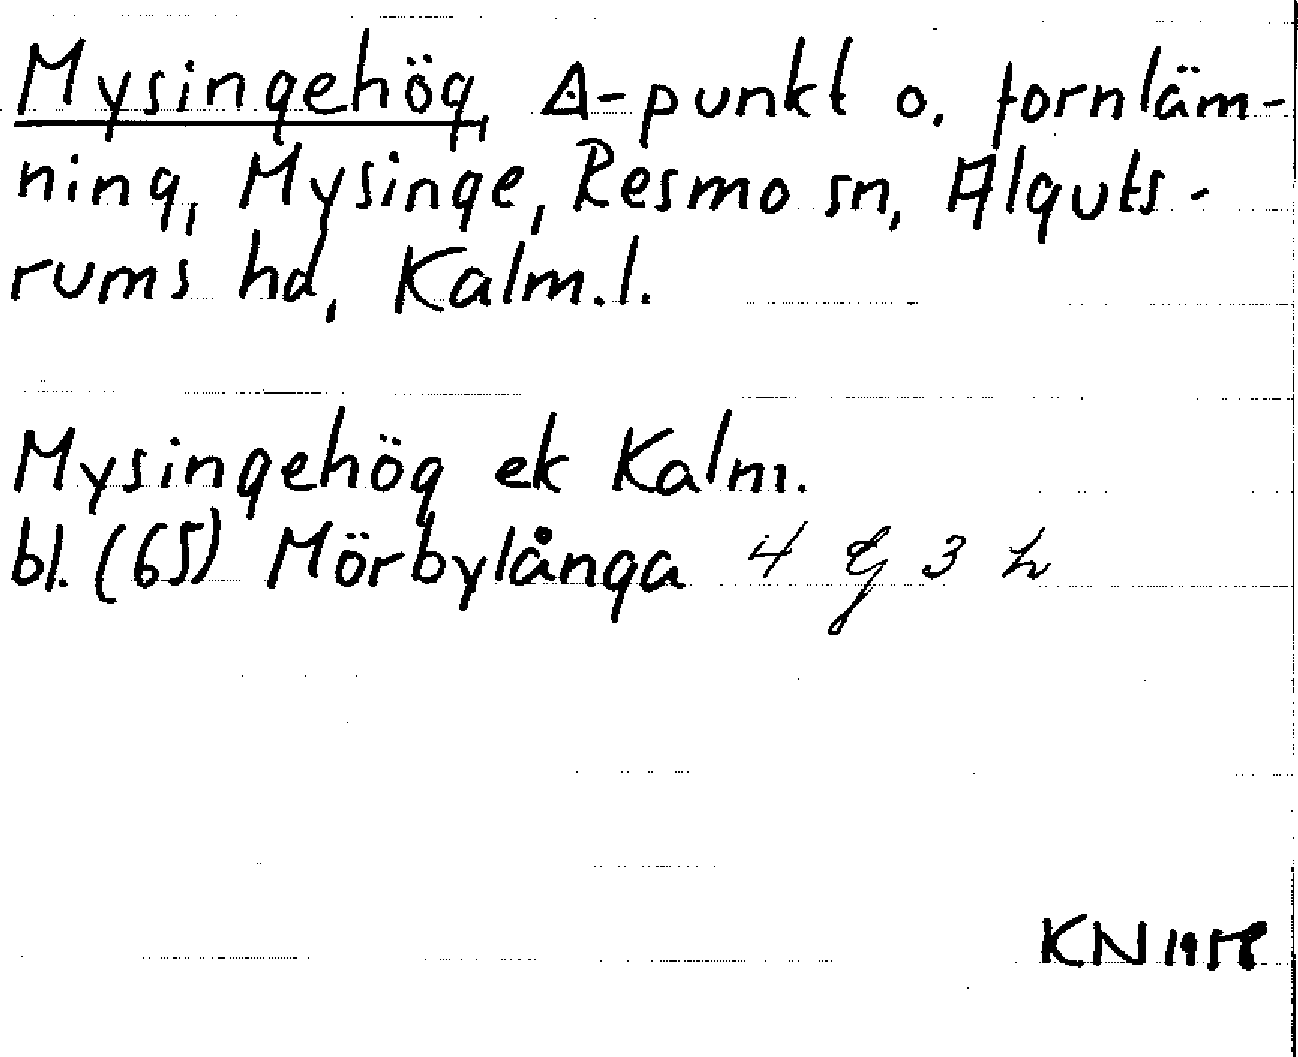 Mysingehög, Δ-punkt o. fornläm-
ning, Mysinge, Resmo sn, Alguts-
rums hd, Kalm.l.
Mysingehög ek Kalm.
bl. (65) Mörbylånga 4 G 3 h
KN 1958